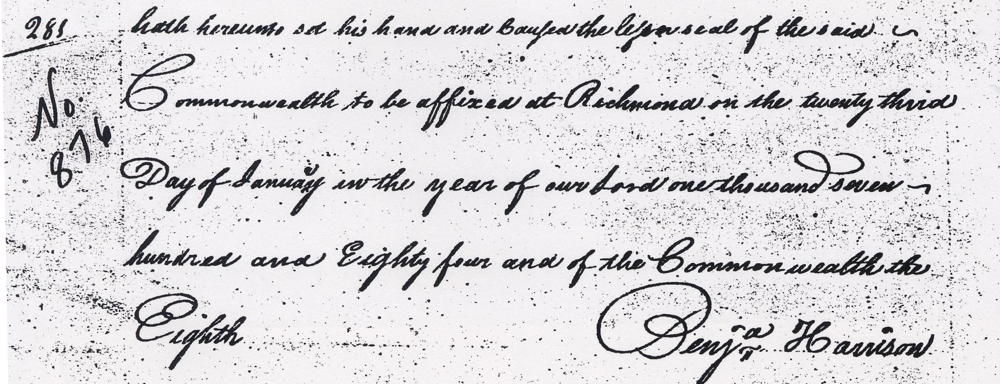 281
hath hereunto set his hand and Caused the lesser seal of the said
No. 876
Commonwealth to be affixed at Richmond on the twenty third
Day of January in the year of our Lord one thousand seven
hundred and Eighty four and of the Commonwealth the
Eighth
Benja Harrison